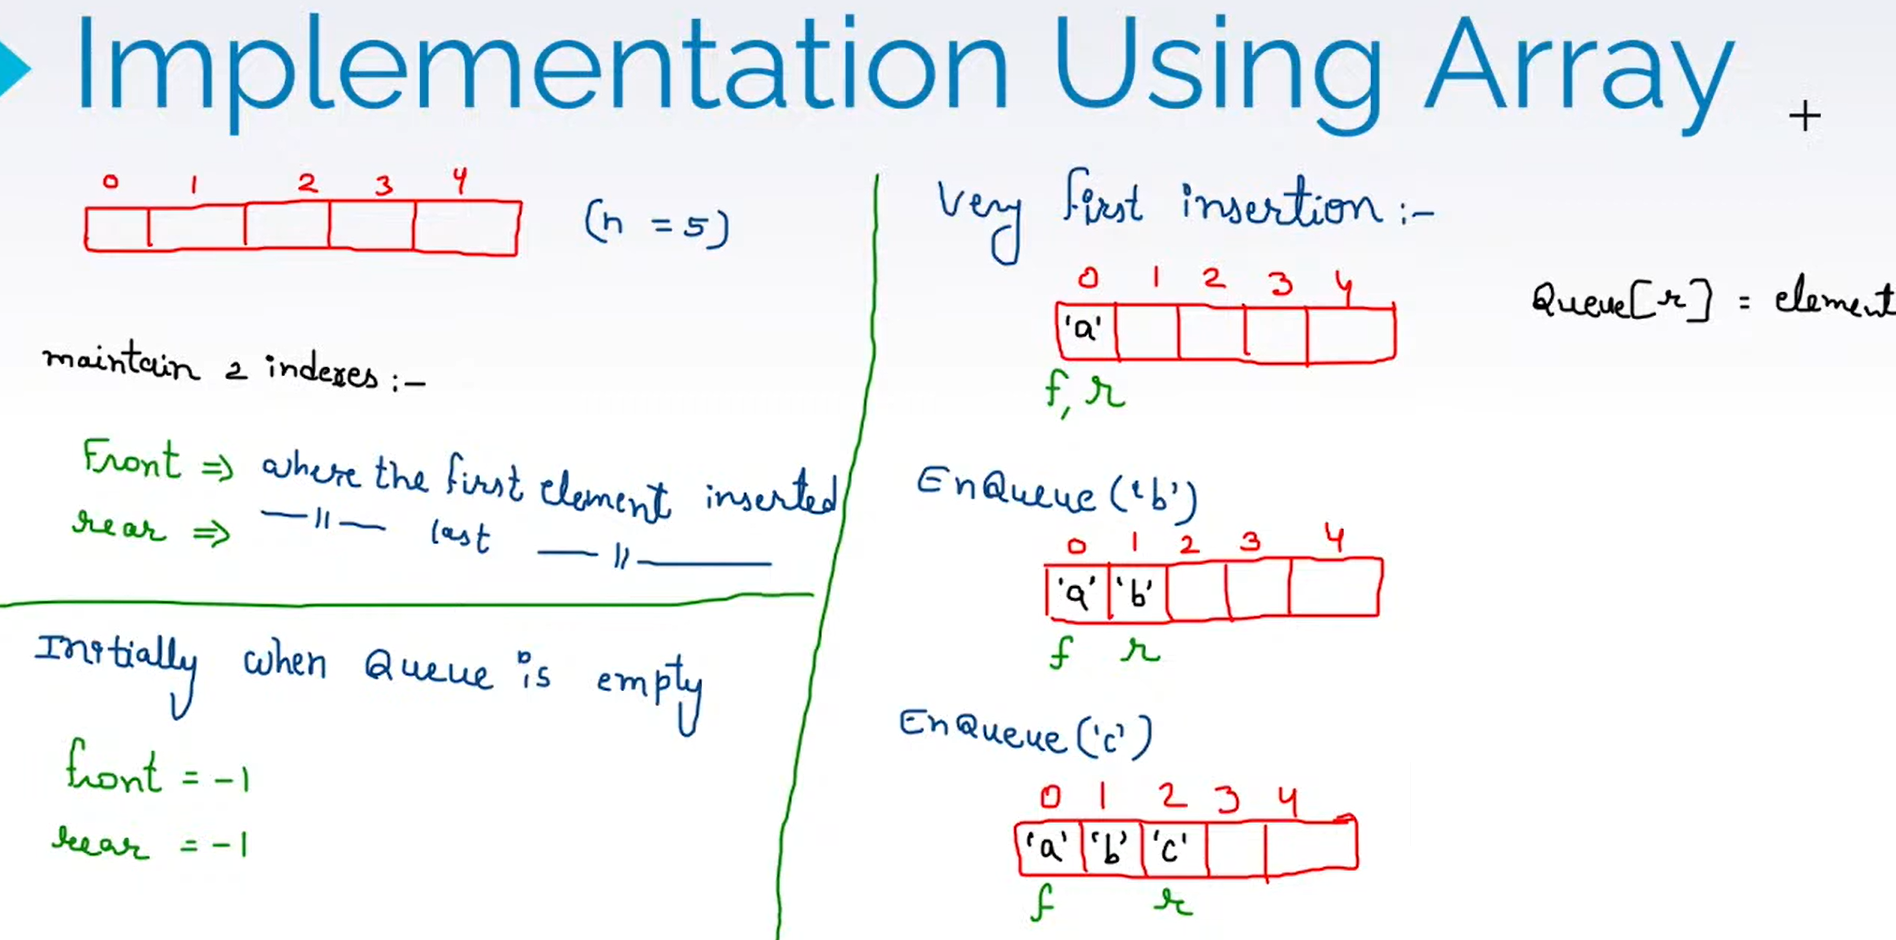 Implementation Using Array
0 1 2 3 4
(n = 5)
maintain 2 indexes :-
Front ⇒ where the first element inserted
rear ⇒ —〃— last —〃—
Initially when Queue is empty
front = -1
rear = -1
Very first insertion :-
0 1 2 3 4
'a'
f, r
Queue[r] = element
EnQueue('b')
0 1 2 3 4
'a' 'b'
f r
EnQueue('c')
0 1 2 3 4
'a' 'b' 'c'
f r